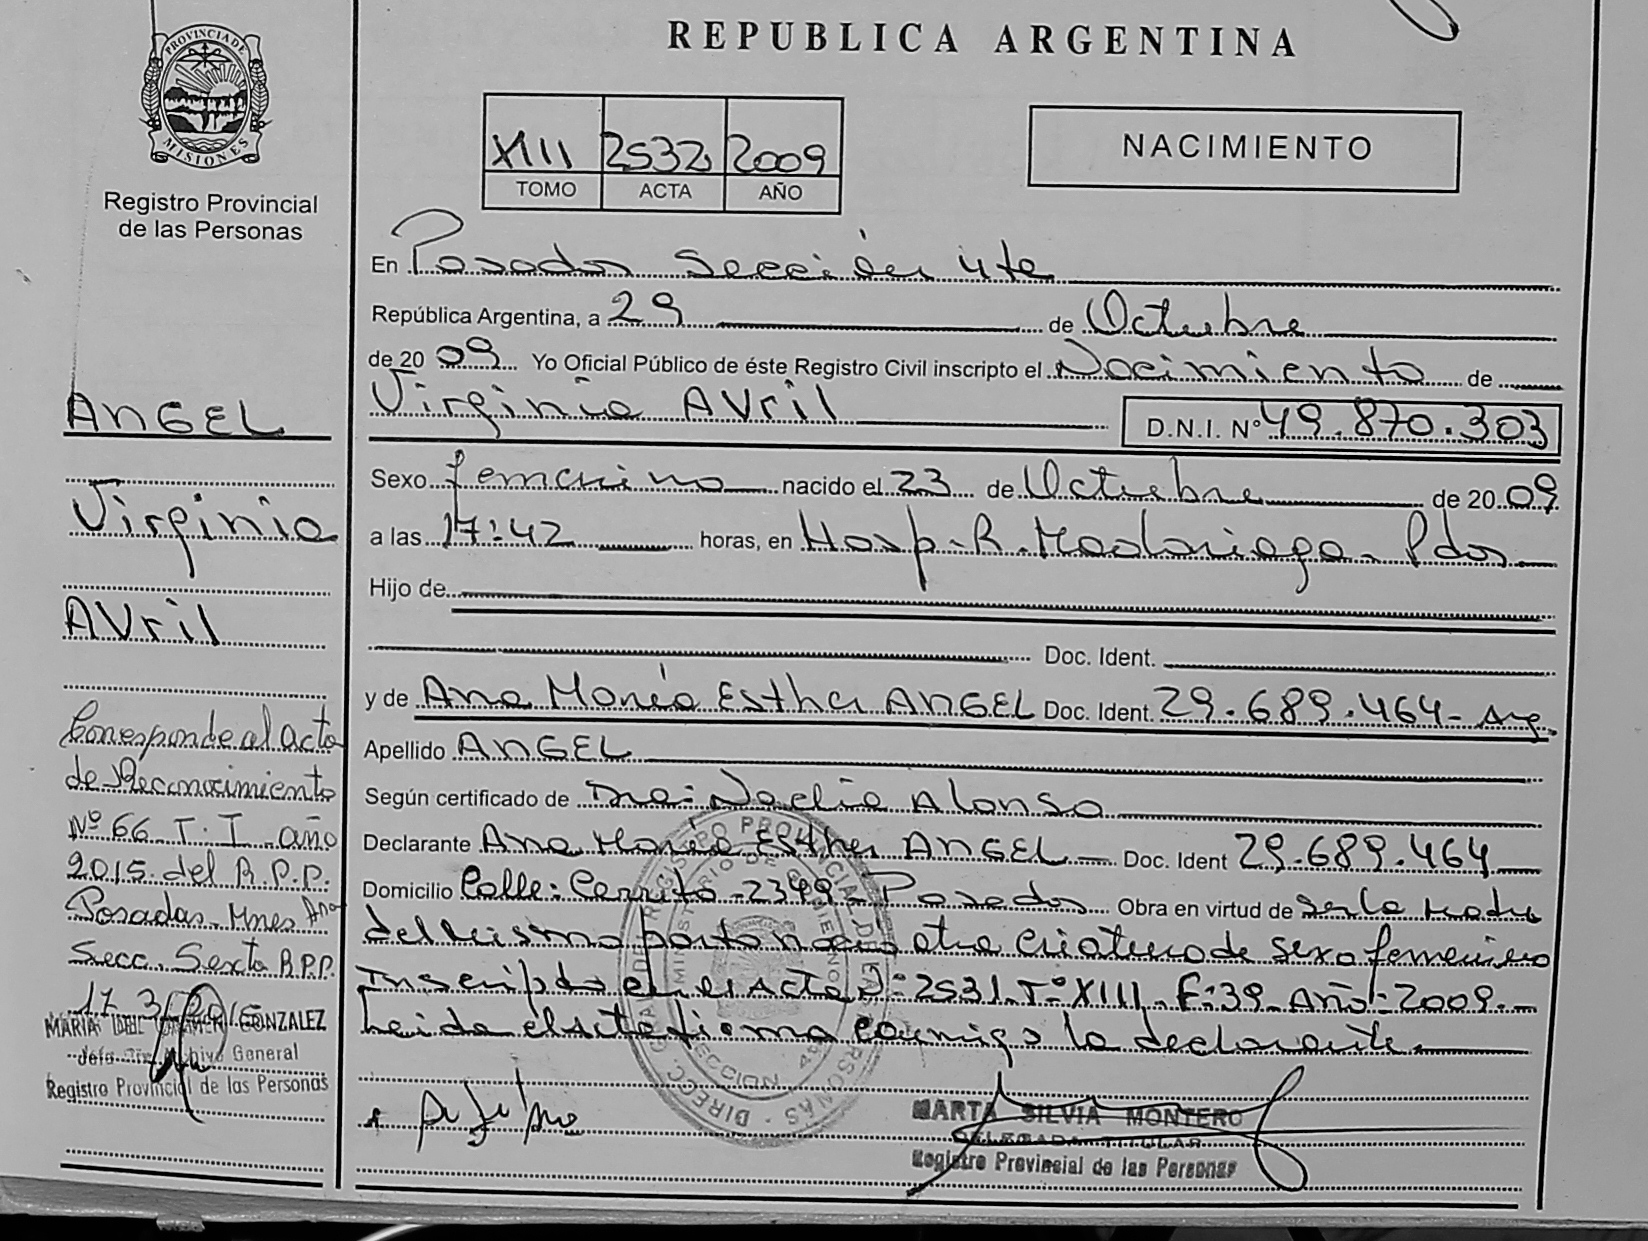 REPUBLICA ARGENTINA
PROVINCIA DE
MISIONES
Registro Provincial
de las Personas
XIII 2532 2009
TOMO ACTA AÑO
NACIMIENTO
En Posadas Sección 4ta
República Argentina, a 29 de Octubre
de 2009 Yo Oficial Público de éste Registro Civil inscripto el Nacimiento de
Virginia AVril D.N.I. N° 49.870.303
Sexo femenino nacido el 23 de Octubre de 2009
a las 17:42 horas, en Hosp. R. Madariaga - Pdas
Hijo de
Doc. Ident.
y de Ana María Esther ANGEL Doc. Ident. 29.689.464 - Arg.
Apellido ANGEL
Según certificado de Dra: Noelia Alonso
Declarante Ana María Esther ANGEL - Doc. Ident 29.689.464
Domicilio Calle: Cerrito - 2349 - Posadas Obra en virtud de Ser la Madre
del mismo parto nació otra criatura de sexo femenino
Inscripta en el Acta N°: 2531 T° XIII - F: 39 - Año: 2009. -
Leída el Acta firma conmigo la declarante -
MARTA SILVIA MONTERO
DELEGADA TITULAR
Registro Provincial de las Personas
ANGEL
Virginia
AVril
Corresponde al acta
de Reconocimiento
Nº 66 T: I año
2015 del R.P.P.
Posadas - Mnes
Secc. Sexta R.P.P.
17
MARIA GONZALEZ
Archivo General
Registro Provincial de las Personas